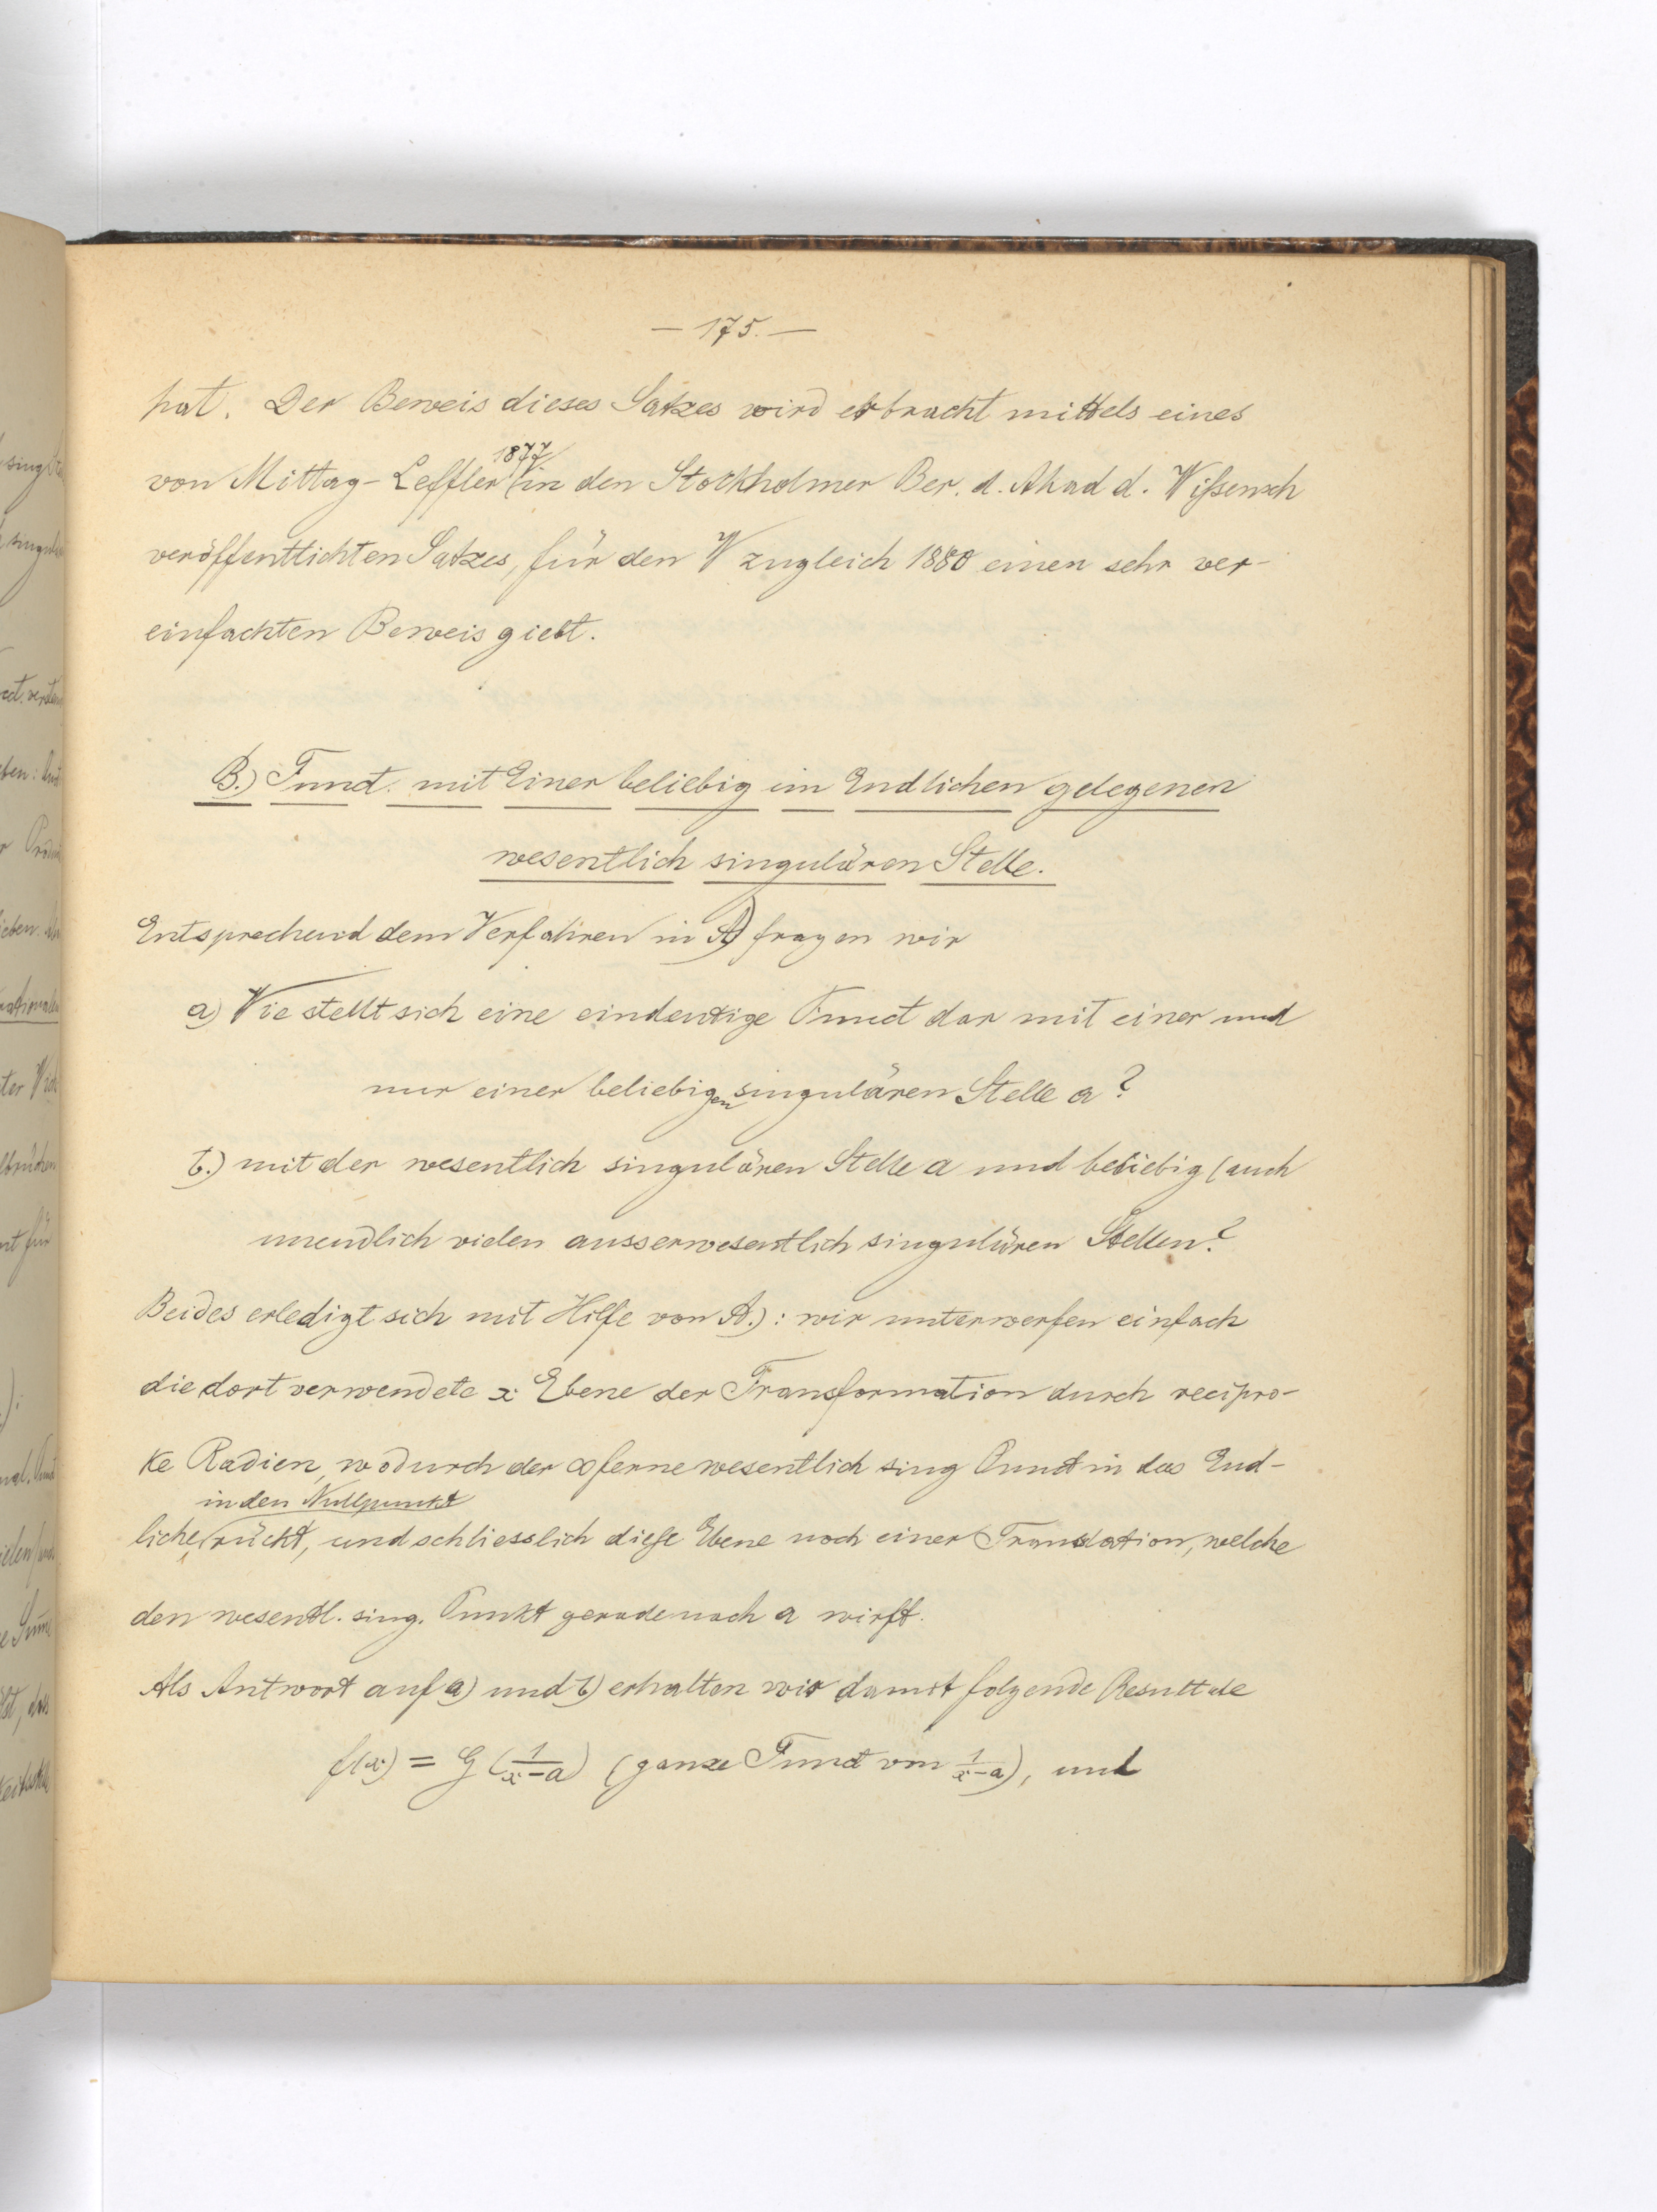 — 175. —
hat. Der Beweis dieses Satzes wird erbracht mittels eines
von Mittag-Leffler 1877 in den Stockholmer Ber. d. Akad d. Wißensch
veröffentlichten Satzes, für den W zugleich 1880 einen sehr ver-
einfachten Beweis giebt.
B.) Funct. mit Einer beliebig im Endlichen gelegenen
wesentlich singulären Stelle.
Entsprechend dem Verfahren in A) fragen wir
a) Wie stellt sich eine eindeutige Funct dar mit einer und
nur einer beliebigen singulären Stelle a?
b.) mit der wesentlich singulären Stelle a und beliebig (auch
unendlich vielen ausserwesentlich singulären Stellen?
Beides erledigt sich mit Hilfe von A.): wir unterwerfen einfach
die dort verwendete x Ebene der Transformation durch recipro-
ke Radien, wodurch der ∞ ferne wesentlich sing Punct in das End-
in den Nullpunkt
liche rückt, und schliesslich diese Ebene noch einer Translation, welche
den wesentl. sing. Punkt gerade nach a wirft.
Als Antwort auf a) und b) erhalten wir damit folgende Resultate
f(x) = G (1/x-a) (ganze Funct von 1/x-a), und